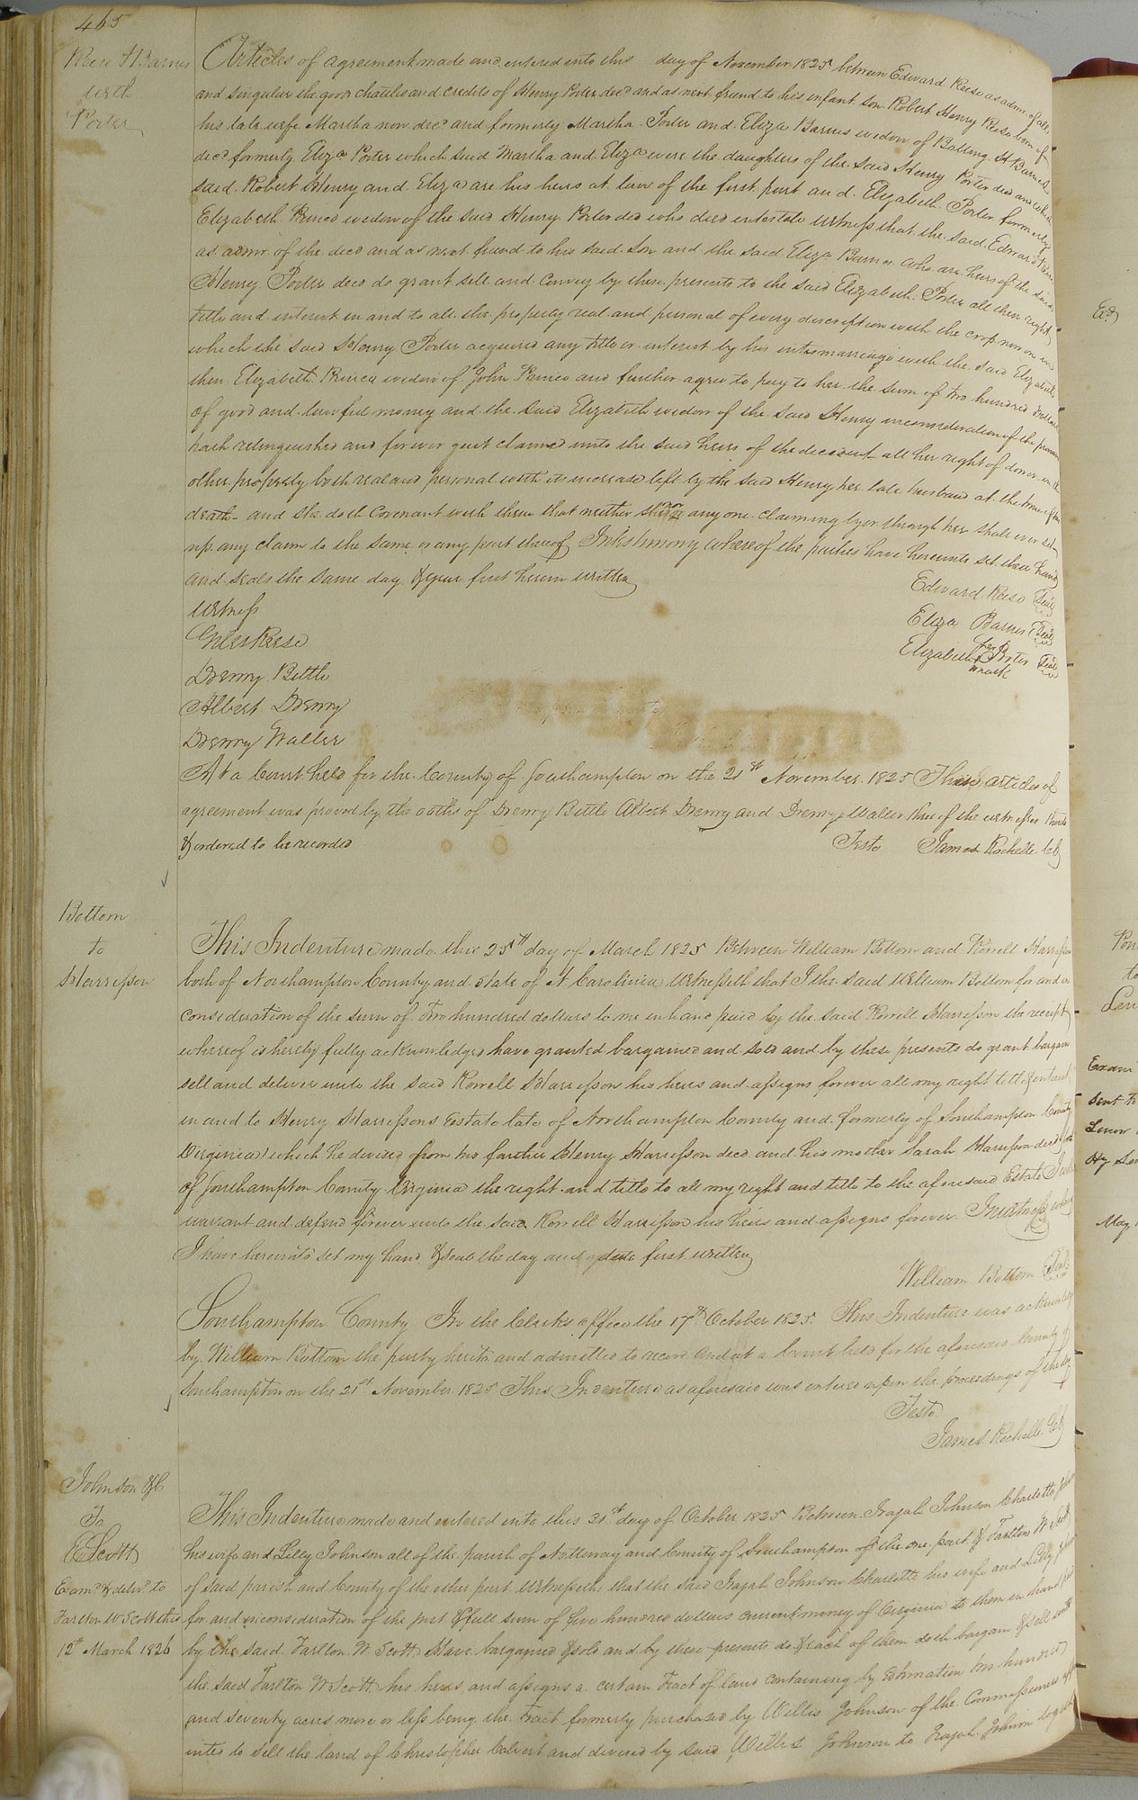 465
Reese & Barnes
with
Porter
Articles of agreement made and entered into this day of November 1825 between Edward Reese as admr. of all
and singular the goods chattels and credits of Henry Porter decd and as next friend to his infant son Robert Henry Reese born of
his late wife Martha now decd and formerly Martha Porter and Eliza Barnes widow of H Barnes
decd formerly Eliza Porter which said Martha and Eliza were the daughters of the said Henry Porter decd and which
said Robert Henry and Eliza are his heirs at law of the first part and Elizabeth Porter formerly
Elizabeth widow of the said Henry Porter decd who died intestate witness that the said Edward Reese
as admr. of the decd and as next friend to his said son and the said Eliza Barnes who are heirs of the said
Henry Porter decd do grant sell and convey by these presents to the said Elizabeth Porter all their right
title and interest in and to all the property real and personal of every description with the crop now on
which the said Henry Porter acquired any title or interest by his intermarriage with the said Elizabeth
then Elizabeth widow of John and further agree to pay to her the sum of two hundred dollars
of good and lawful money and the said Elizabeth widow of the said Henry in consideration of the premises
hath relinquished and forever quit claimed unto the said heirs of the decedent all her right of dower in
other property both real and personal with its increase left by the said Henry her late husband at the time of his
death and she doth covenant with them that neither she or any one claiming by or through her shall ever set
up any claim to the same or any part thereof In testimony whereof the parties have hereunto set their hands
and seals the same day & year first herein written
Edward Reese Seal
Witness
Eliza Barnes Seal
Giles Reese
Elizabeth her X mark Porter Seal
Drewry Bittle
Albert Drewry
Drewry Waller
At a Court held for the County of Southampton on the 21st November 1825 This articles of
agreement was proved by the oaths of Drewry Bittle Albert Drewry and Drewry Waller three of the witnesses thereto
& ordered to be recorded Teste James Rochelle Clk
Bottom
to
Harrisson
This Indenture made this 25th day of March 1825 Between William Bottom and Korrell Harrisson
both of Northampton County and State of N Carolinia Witnesseth that I the said William Bottom for and in
consideration of the sum of Two hundred dollars to me in hand paid by the said Korrell Harrisson the receipt
whereof is hereby fully acknowledged have granted bargained and sold and by these presents do grant bargain
sell and deliver unto the said Korrell Harrisson his heirs and assigns forever all my right title & interest
in and to Henry Harrissons Estate late of Northampton County and formerly of Southampton County
Virginia which he devised from his farther Henry Harrisson decd and his mother Sarah Harrisson decd
of Southampton County Virginia the right and title to all my right and title to the aforesaid Estate I will
warrant and defend forever unto the said Korrell Harrisson his heirs and assigns forever In witness whereof
I have hereunto set my hand & seal the day and date first written
William Bottom Seal
Southampton County In the Clerks office the 17th October 1825 This Indenture was acknowledged
by William Bottom the party hereto and admitted to record And at a Court held for the aforesaid County of
Southampton on the 21st November 1825 This Indenture as aforesaid was entered upon the proceedings of the day
Teste
James Rochelle Clk
Johnson &c
To
Scott
Examd & delivd to
Tarlton W Scott this
12th March 1826
This Indenture made and entered into this 31st day of October 1825 Between Irajah Johnson Charlotte Johnson
his wife and Lilly Johnson all of the parish of Nottoway and County of Southampton of the one part & Tarlton W Scott
of said parish and County of the other part Witnesseth that the said Irajah Johnson Charlotte his wife and Lilly Johnson
for and in consideration of the just & full sum of five hundred dollars current money of Virginia to them in hand paid
by the said Tarlton W Scott Have bargained & sold and by these presents do & each of them doth bargain & sell unto
the said Tarlton W Scott his heirs and assigns a certain Tract of land containing by Estimation two hundred
and seventy acres more or less being the tract formerly purchased by Willis Johnson of the Commissioners
to sell the land of Christopher Calvert and devised by said Willis Johnson to Irajah Johnson
Exam
sent
May